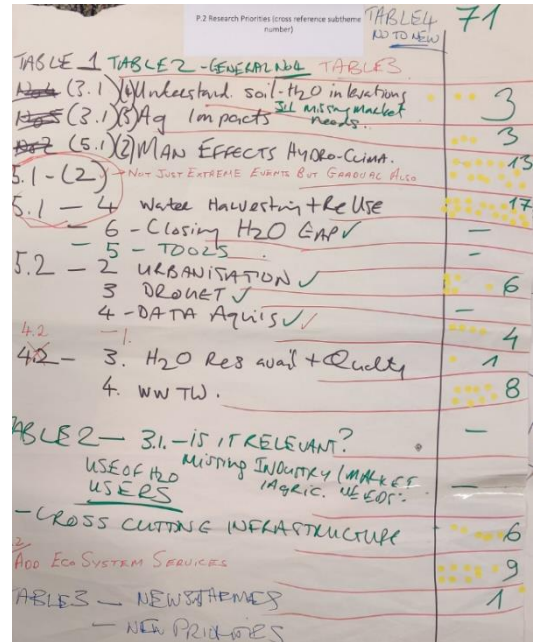 P.2 Research Priorities (cross reference subtheme number)
TABLE4 71
NO TO NEW
TABLE 1 TABLE2 - GENERAL NOL TABLE3
(3.1) (4) Understand. soil-H2O interations 3
3.1 missing market needs..
(3.1) (3) Ag Impacts 3
(5.1) (2) MAN EFFECTS HYDRO-CLIMA. 13
5.1 - (2) → NOT JUST EXTREME EVENTS BUT GRADUAL ALSO
5.1 - 4 Water Harvesting + Re Use 17
- 6 - Closing H2O GAP ✓ -
- 5 - TOOLS. -
5.2 - 2 URBANISATION ✓ 6
3 DROUET ✓ -
4 - DATA Aquis ✓✓ 4
4.2 - 1.
42 - 3. H2O Res avail + Quality 1
4. WWTW. 8
TABLE 2 - 3.1. - IS IT RELEVANT? -
USE OF H2O Missing INDUSTRY / MARKET
USERS / AGRIC. NEEDS. -
- CROSS CUTTING INFRASTRUCTURE 6
2/
ADD ECO SYSTEM SERVICES 9
TABLE3 - NEW STHEMES 1
- NEW PRIORITIES